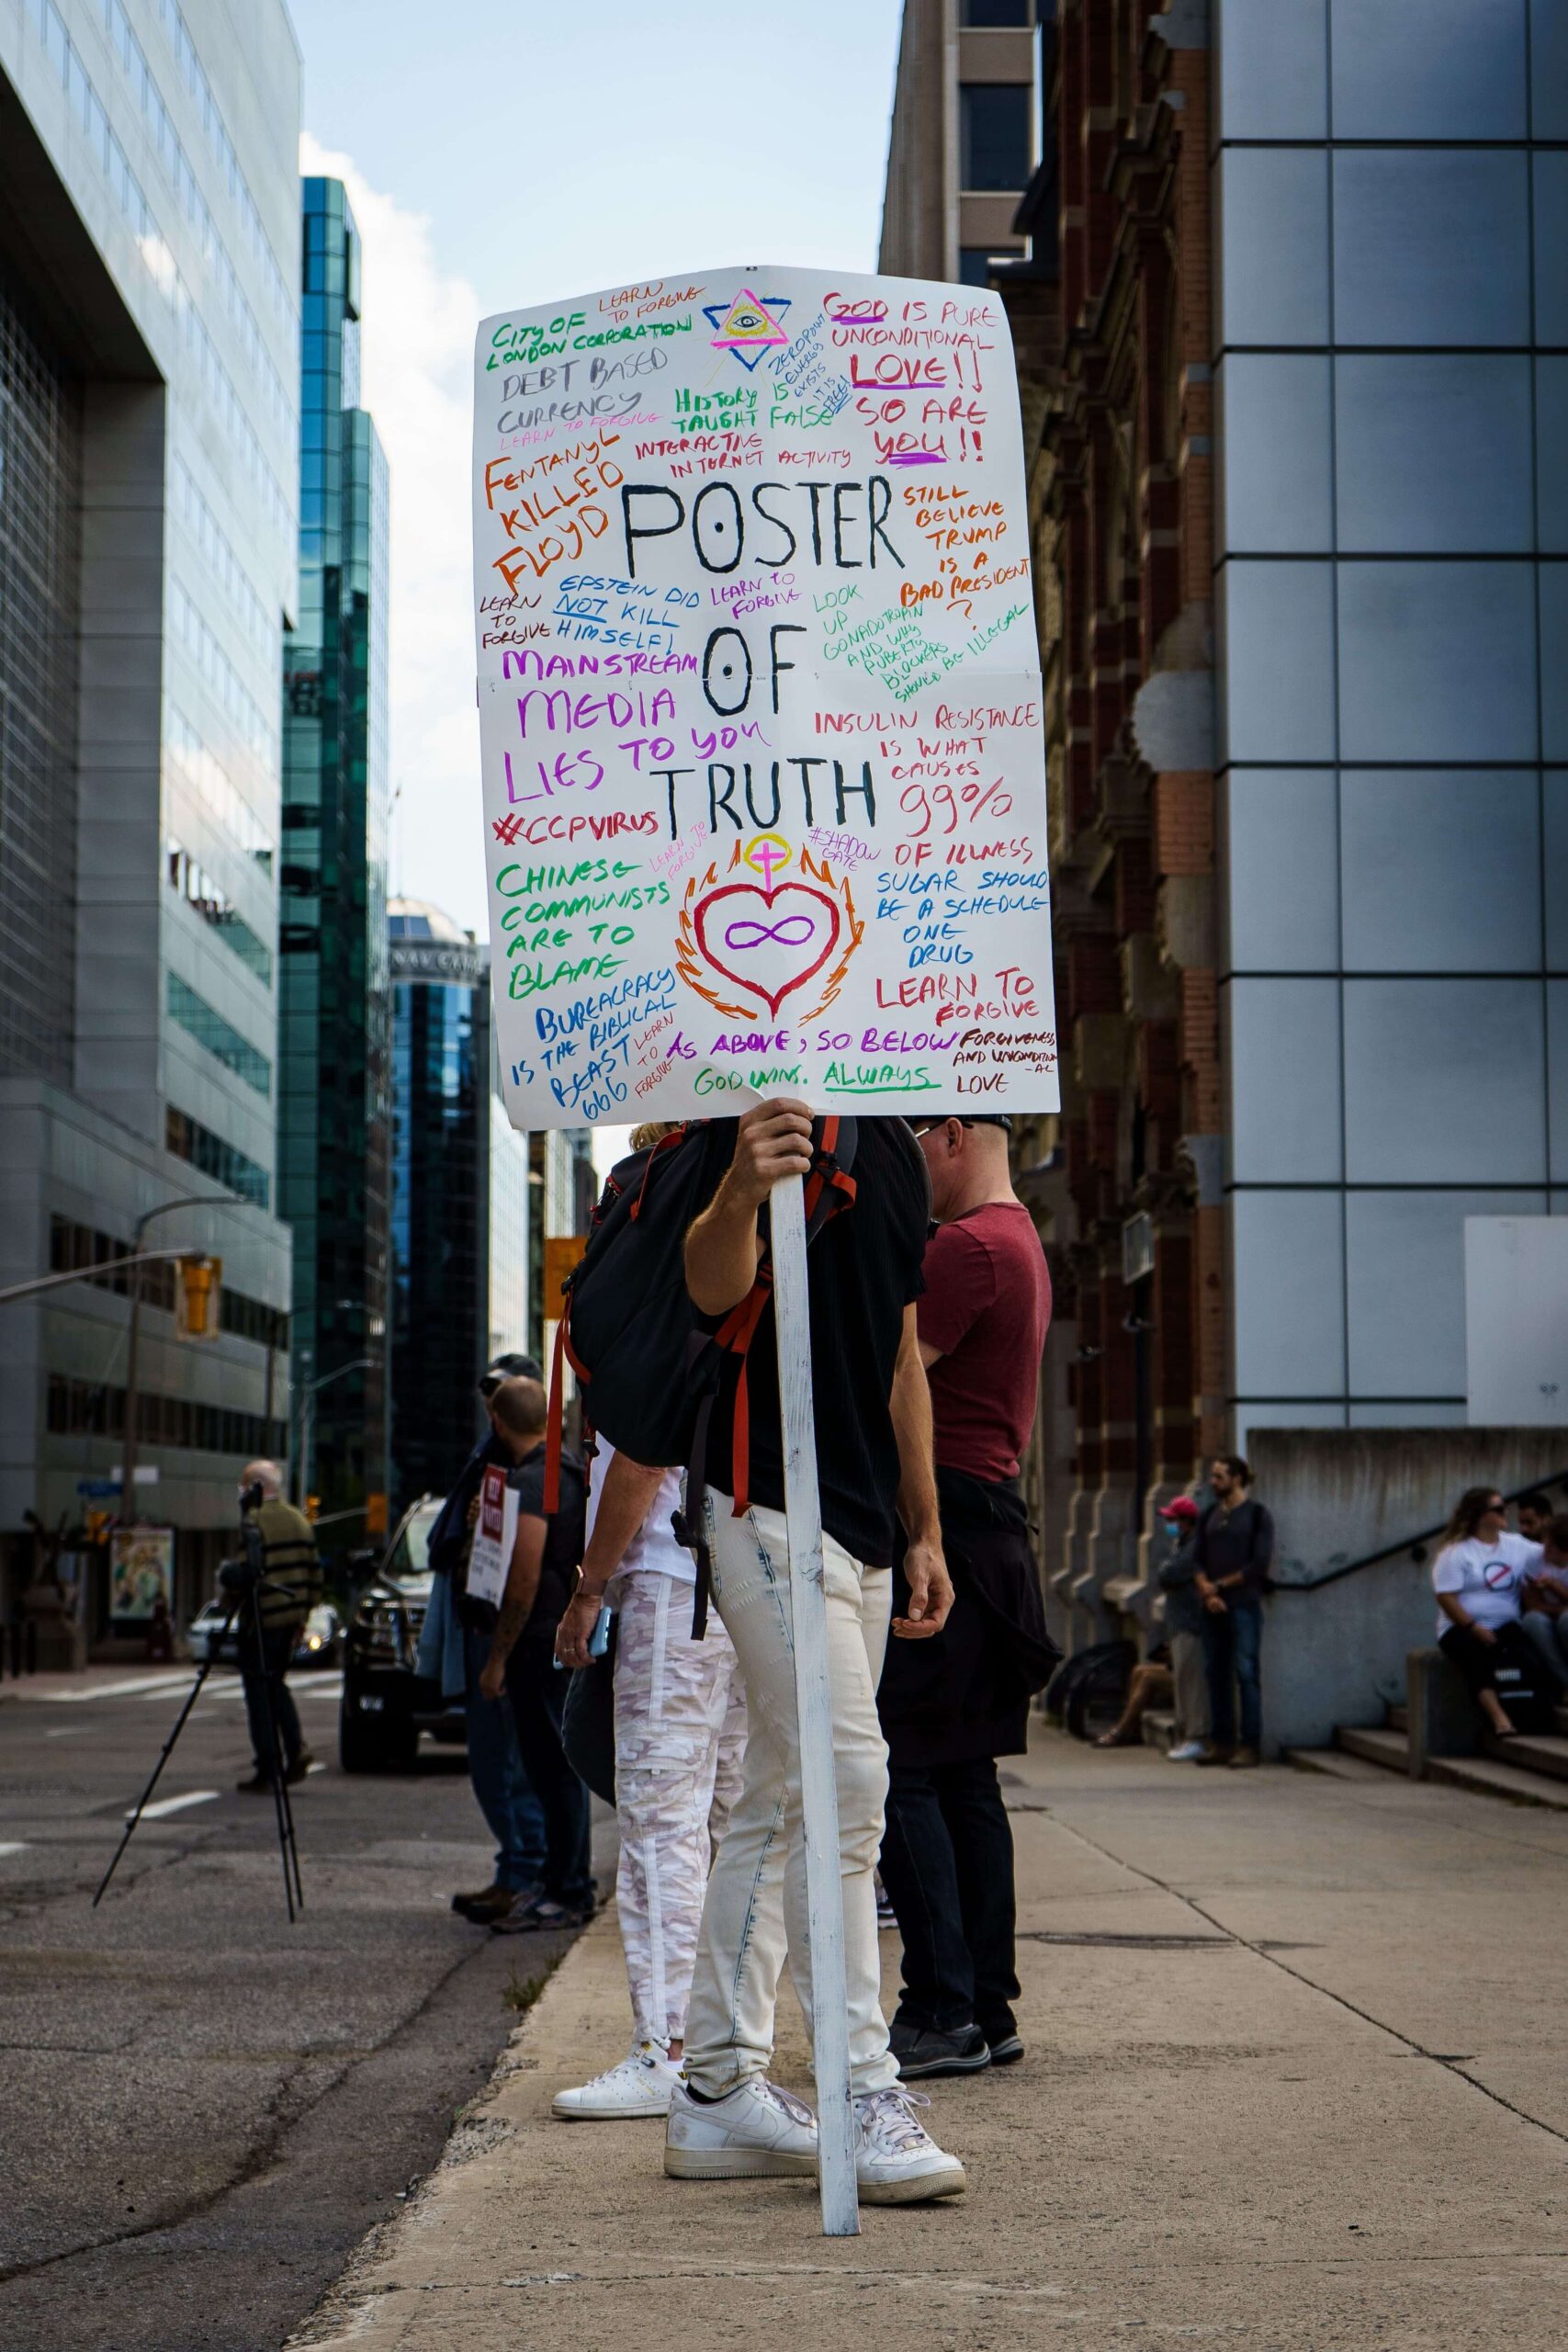 CITY OF
LONDON CORPORATION
LEARN
TO FORGIVE
DEBT BASED
CURRENCY
LEARN TO FORGIVE
ZEROPOINT
ENERGY
EXISTS
IT IS
FREE!
GOD IS PURE
UNCONDITIONAL
LOVE!!
SO ARE
YOU!!
HISTORY IS
TAUGHT FALSE
INTERACTIVE
INTERNET ACTIVITY
FENTANYL
KILLED
FLOYD
POSTER
OF
TRUTH
STILL
BELIEVE
TRUMP
IS A
BAD PRESIDENT
?
LEARN
TO
FORGIVE
EPSTEIN DID
NOT KILL
HIMSELF!
LEARN TO
FORGIVE
LOOK
UP
GONADOTROPIN
AND WHY
PUBERTY
BLOCKERS
SHOULD BE ILLEGAL
MAINSTREAM
MEDIA
LIES TO YOU
INSULIN RESISTANCE
IS WHAT
CAUSES
99%
OF ILLNESS
#CCPVIRUS
LEARN TO
FORGIVE
#SHADOW
GATE
CHINESE
COMMUNISTS
ARE TO
BLAME
SUGAR SHOULD
BE A SCHEDULE
ONE
DRUG
LEARN TO
FORGIVE
BUREAUCRACY
IS THE BIBLICAL
BEAST
666
LEARN
TO
FORGIVE
AS ABOVE, SO BELOW
GOD WINS. ALWAYS
FORGIVENESS
AND UNCONDITION
-AL
LOVE